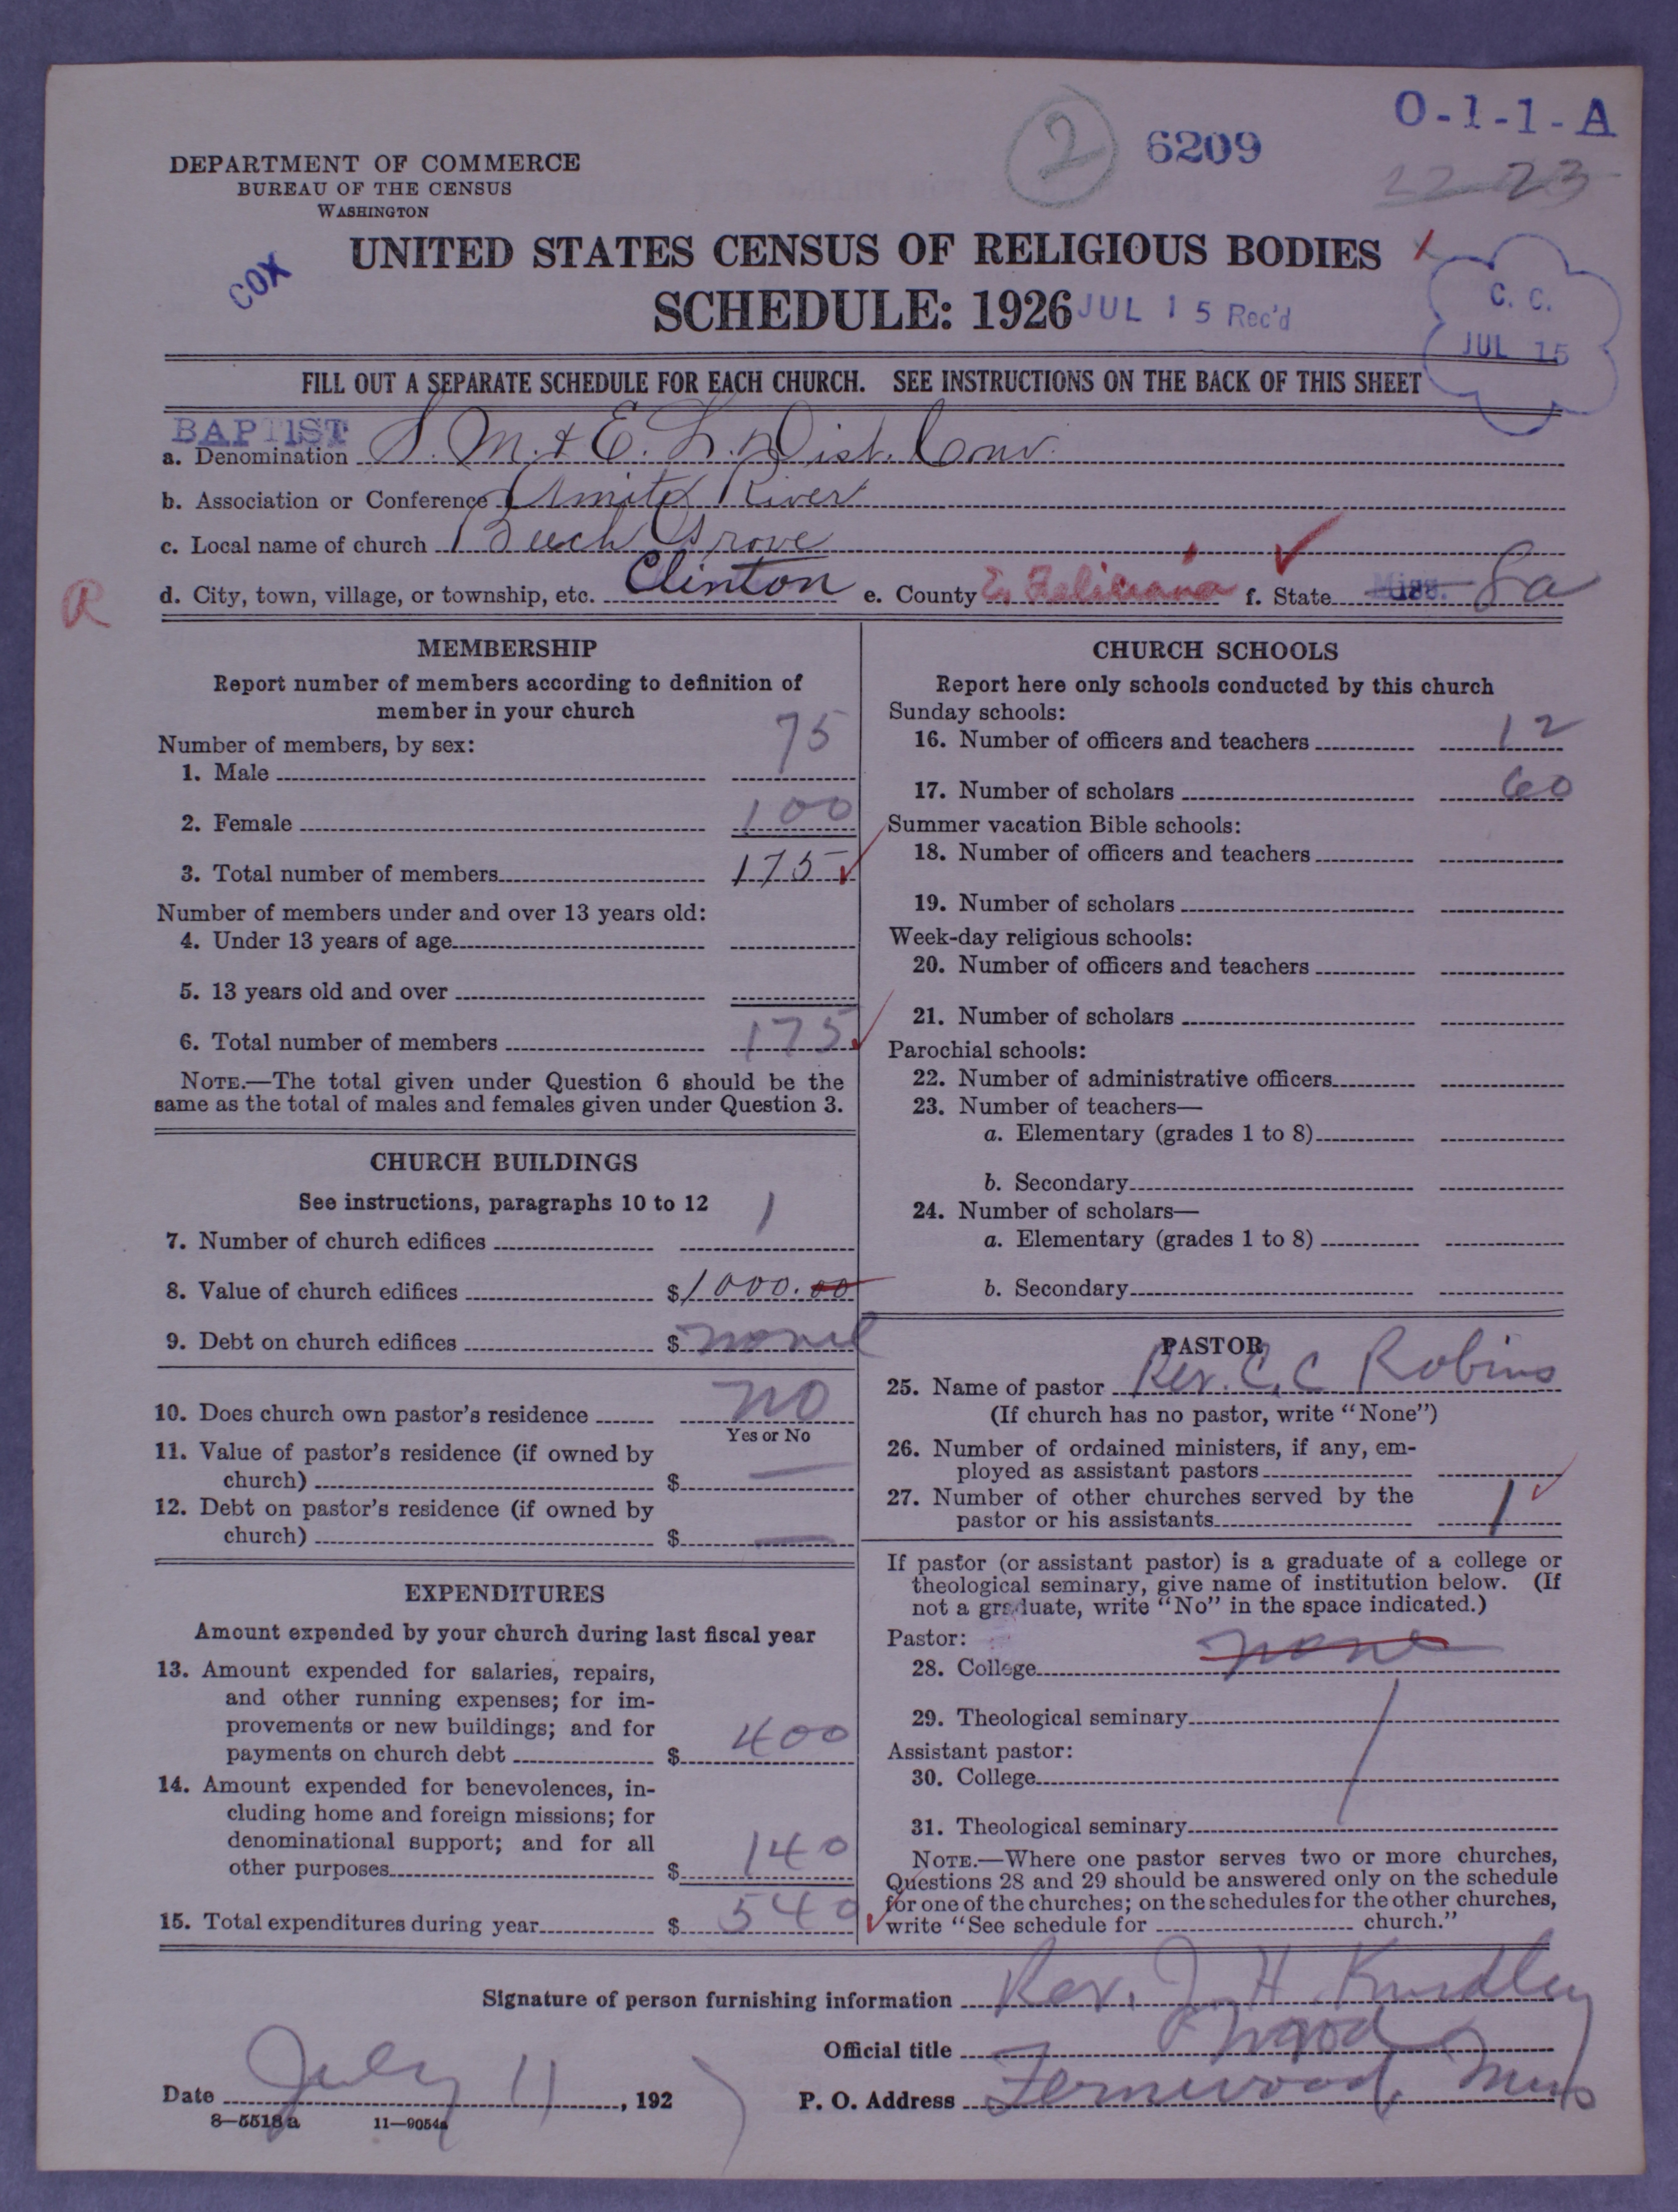 O-1-1-A
2
6209
22 23
DEPARTMENT OF COMMERCE
BUREAU OF THE CENSUS
WASHINGTON
COX
UNITED STATES CENSUS OF RELIGIOUS BODIES
SCHEDULE: 1926
JUL 15 Rec'd
C. C.
JUL 15
FILL OUT A SEPARATE SCHEDULE FOR EACH CHURCH. SEE INSTRUCTIONS ON THE BACK OF THIS SHEET
BAPTIST
a. Denomination S. M. & E. L. Dist. Conv.
b. Association or Conference Amite River
c. Local name of church Beech Grove
R
d. City, town, village, or township, etc. Clinton e. County E. Feliciana f. State Miss. La
MEMBERSHIP
Report number of members according to definition of
member in your church
Number of members, by sex:
1. Male 75
2. Female 100
3. Total number of members 175
Number of members under and over 13 years old:
4. Under 13 years of age
5. 13 years old and over
6. Total number of members 175
NOTE.—The total given under Question 6 should be the
same as the total of males and females given under Question 3.
CHURCH BUILDINGS
See instructions, paragraphs 10 to 12
7. Number of church edifices 1
8. Value of church edifices $1000.00
9. Debt on church edifices $
10. Does church own pastor's residence NO
Yes or No
11. Value of pastor's residence (if owned by
church) $ —
12. Debt on pastor's residence (if owned by
church) $ —
EXPENDITURES
Amount expended by your church during last fiscal year
13. Amount expended for salaries, repairs,
and other running expenses; for im-
provements or new buildings; and for
payments on church debt $ 400
14. Amount expended for benevolences, in-
cluding home and foreign missions; for
denominational support; and for all
other purposes $ 140
15. Total expenditures during year $ 540
CHURCH SCHOOLS
Report here only schools conducted by this church
Sunday schools:
16. Number of officers and teachers 12
17. Number of scholars 60
Summer vacation Bible schools:
18. Number of officers and teachers
19. Number of scholars
Week-day religious schools:
20. Number of officers and teachers
21. Number of scholars
Parochial schools:
22. Number of administrative officers
23. Number of teachers—
a. Elementary (grades 1 to 8)
b. Secondary
24. Number of scholars—
a. Elementary (grades 1 to 8)
b. Secondary
PASTOR
25. Name of pastor Rev. C. C Robins
(If church has no pastor, write "None")
26. Number of ordained ministers, if any, em-
ployed as assistant pastors
27. Number of other churches served by the
pastor or his assistants 1
If pastor (or assistant pastor) is a graduate of a college or
theological seminary, give name of institution below. (If
not a graduate, write "No" in the space indicated.)
Pastor:
28. College none
29. Theological seminary
Assistant pastor:
30. College
31. Theological seminary
NOTE.—Where one pastor serves two or more churches,
Questions 28 and 29 should be answered only on the schedule
for one of the churches; on the schedules for the other churches,
write "See schedule for church."
Signature of person furnishing information Rev. J. H.
Official title
Date July 11, 192
P. O. Address Fernwood, Miss
8—5518a 11—9054a